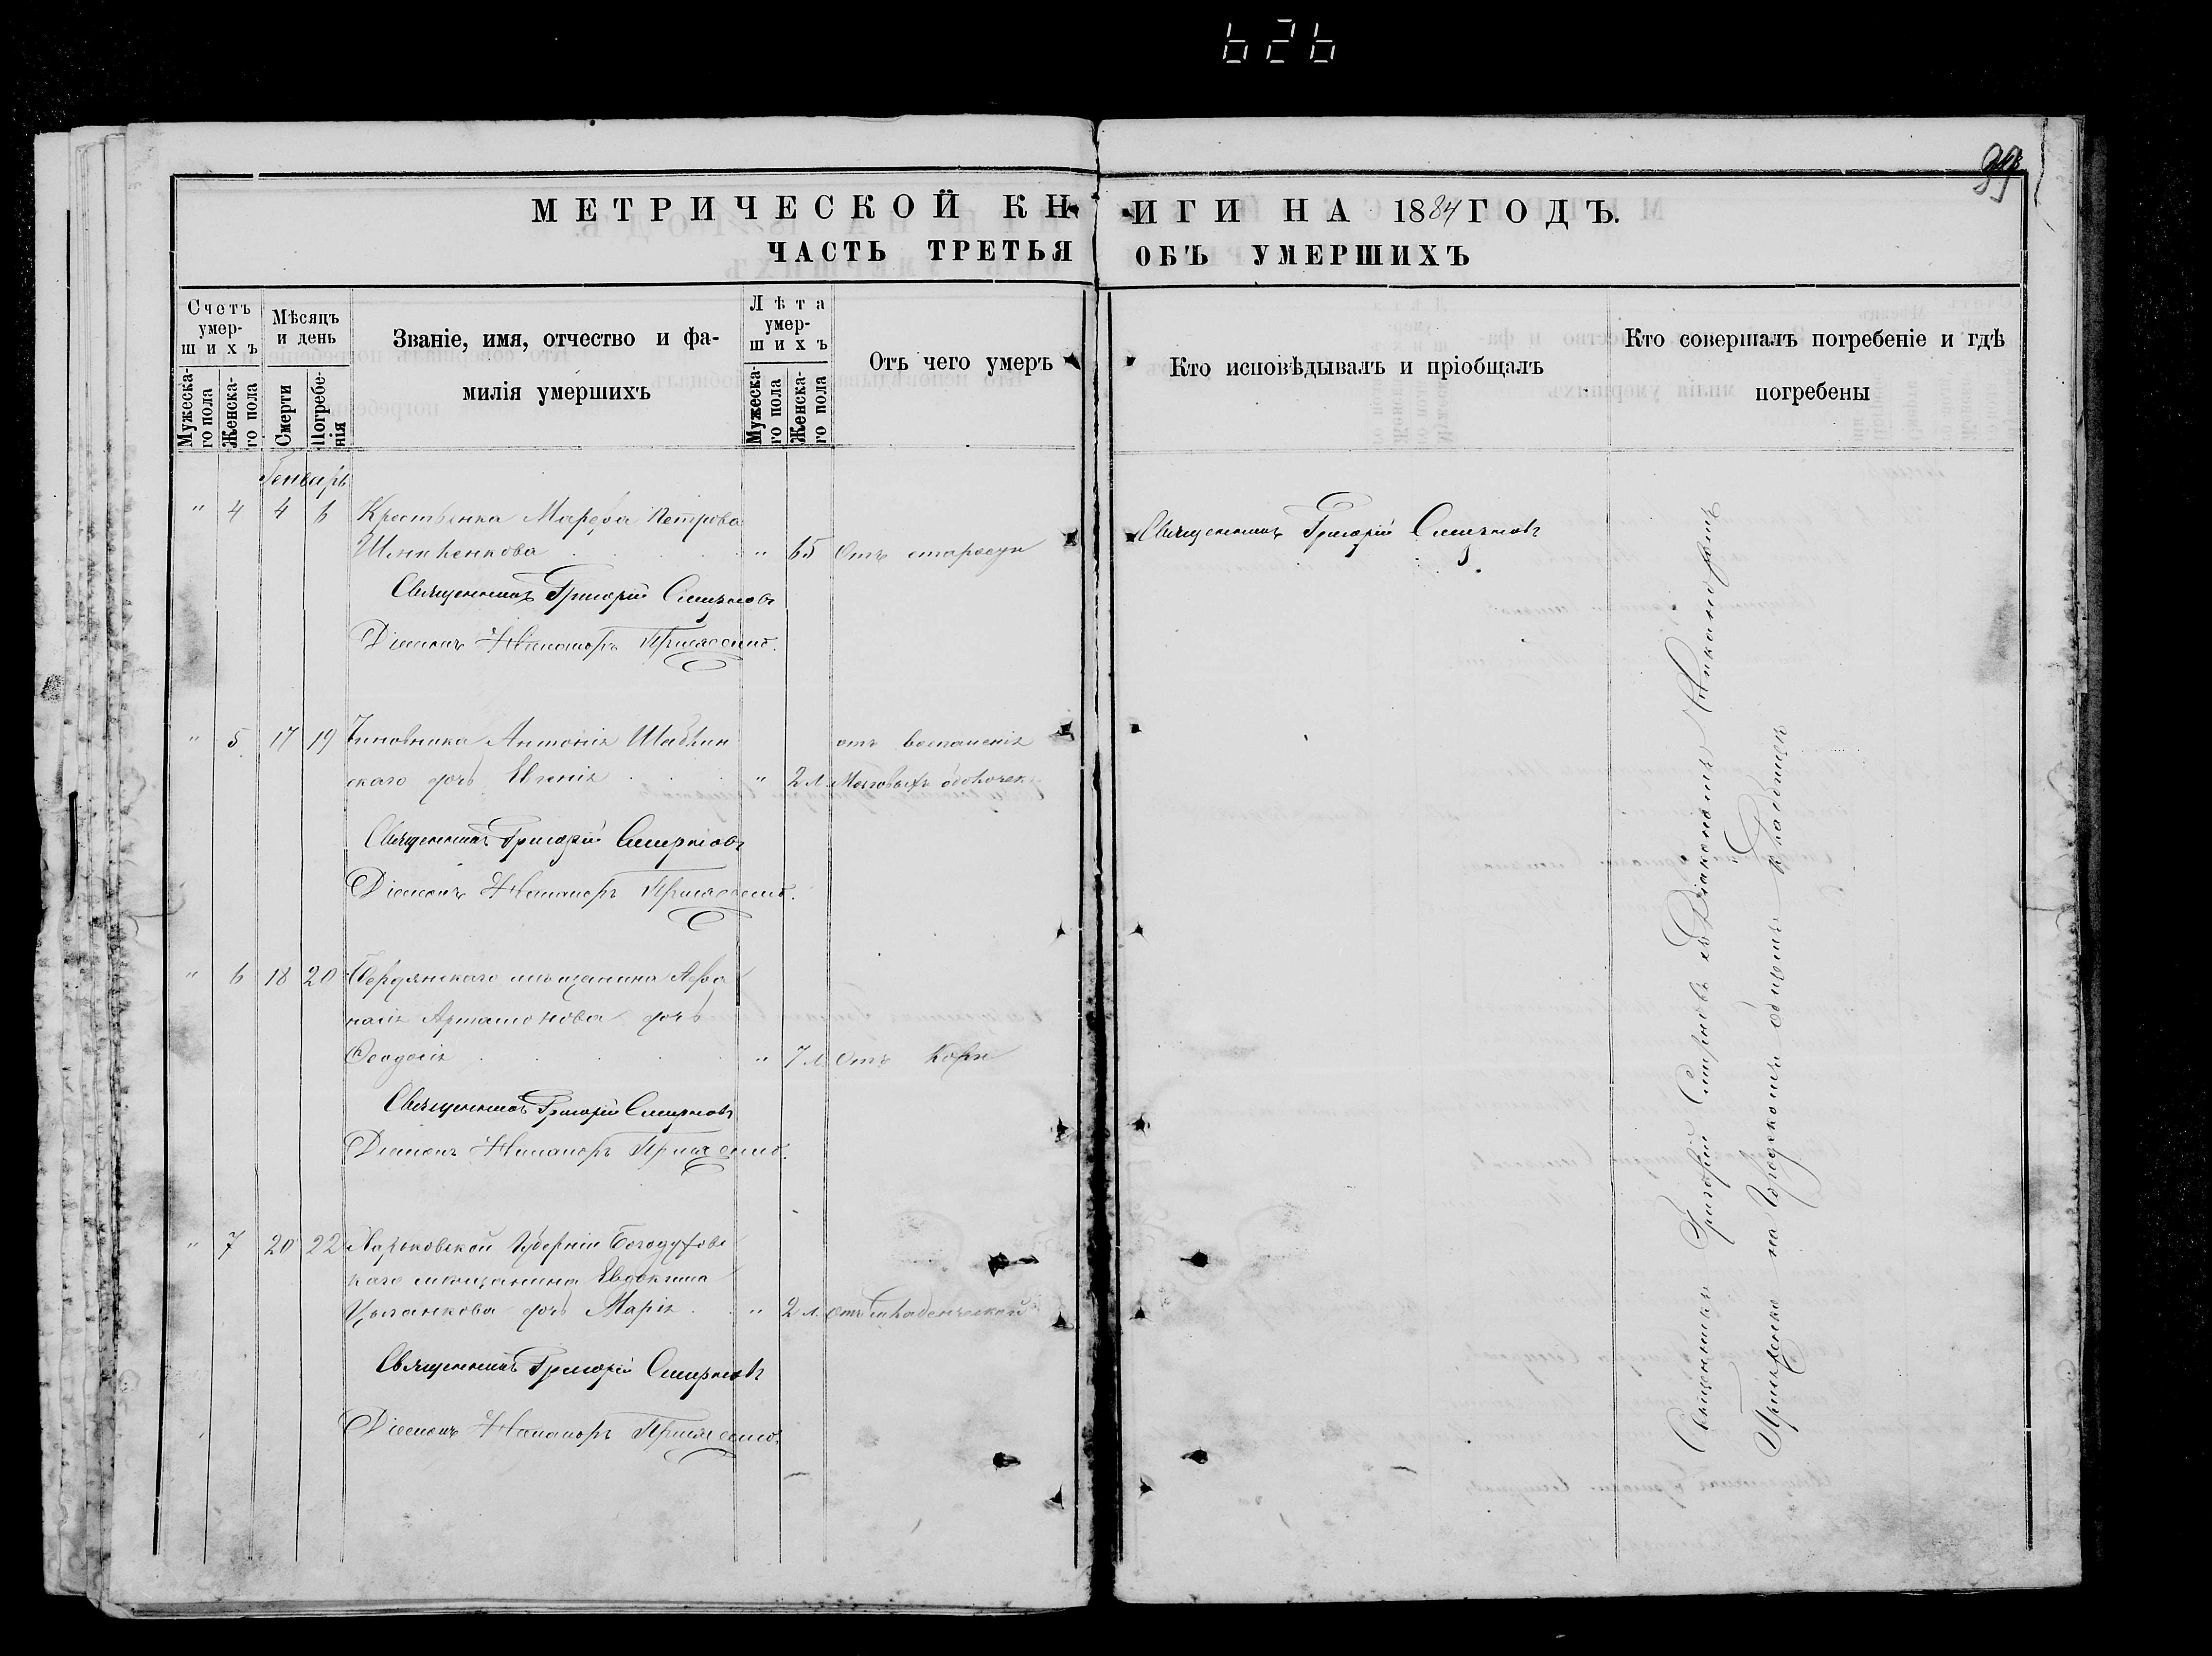 626
99
МЕТРИЧЕСКОЙ КНИГИ НА 1884 ГОДЪ.
ЧАСТЬ ТРЕТЬЯ ОБЪ УМЕРШИХЪ
Счетъ умершихъ
Мужескаго пола
Женскаго пола
Мѣсяцъ и день
Смерти
Погребенія
Званіе, имя, отчество и фамилія умершихъ
Лѣта умершихъ
Мужескаго пола
Женскаго пола
Отъ чего умеръ
Кто исповѣдывалъ и пріобщалъ
Кто совершалъ погребеніе и гдѣ погребены
Генварь
" 4 4 6 Крестьянка Марфа Петрова
" 65 Отъ старости
Священникъ Григорій Смирновъ
Священникъ Григорій Смирновъ
Діаконъ Никаноръ
" 5 17 19 Чиновника Антонія
отъ воспаленія
скаго дочь Евгенія " 2 л. Мозговыхъ оболочекъ
Священникъ Григорій Смирновъ
Діаконъ Никаноръ
" 6 18 20 Бердянскаго мѣщанина Афа
насія Артамонова дочь
Ѳеодосія " 7 л. Отъ Кори
Священникъ Григорій Смирновъ
Діаконъ Никаноръ
" 7 20 22 Харьковской Губерніи Богодухов
скаго мѣщанина Евдокима
дочь Марія " 2 л. отъ младенческой
Священникъ Григорій Смирновъ
Діаконъ Никаноръ
Священникъ Григорій Смирновъ съ Діакономъ Никаноромъ
на Городскомъ общемъ кладбищѣ